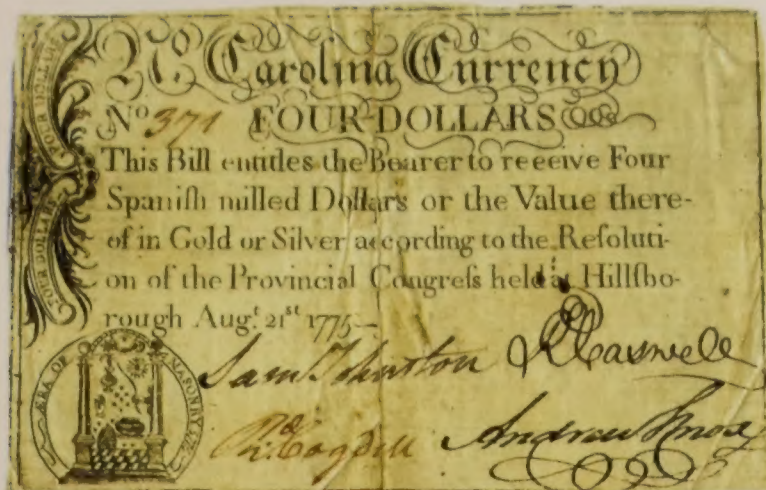 No. Carolina Currency
No 371 FOUR DOLLARS
This Bill entitles the Bearer to reeeive Four
Spaniſh milled Dollars or the Value there-
of in Gold or Silver according to the Reſoluti-
on of the Provincial Congreſs held at Hillſbo-
rough Augt. 21st 1775
Sam Johnston RCaswell
Rd. Cogdell Andrew Knox
FOUR DOLLARS
FOUR DOLLARS
FOUR DOLLARS
ÆRA OF MASONRY